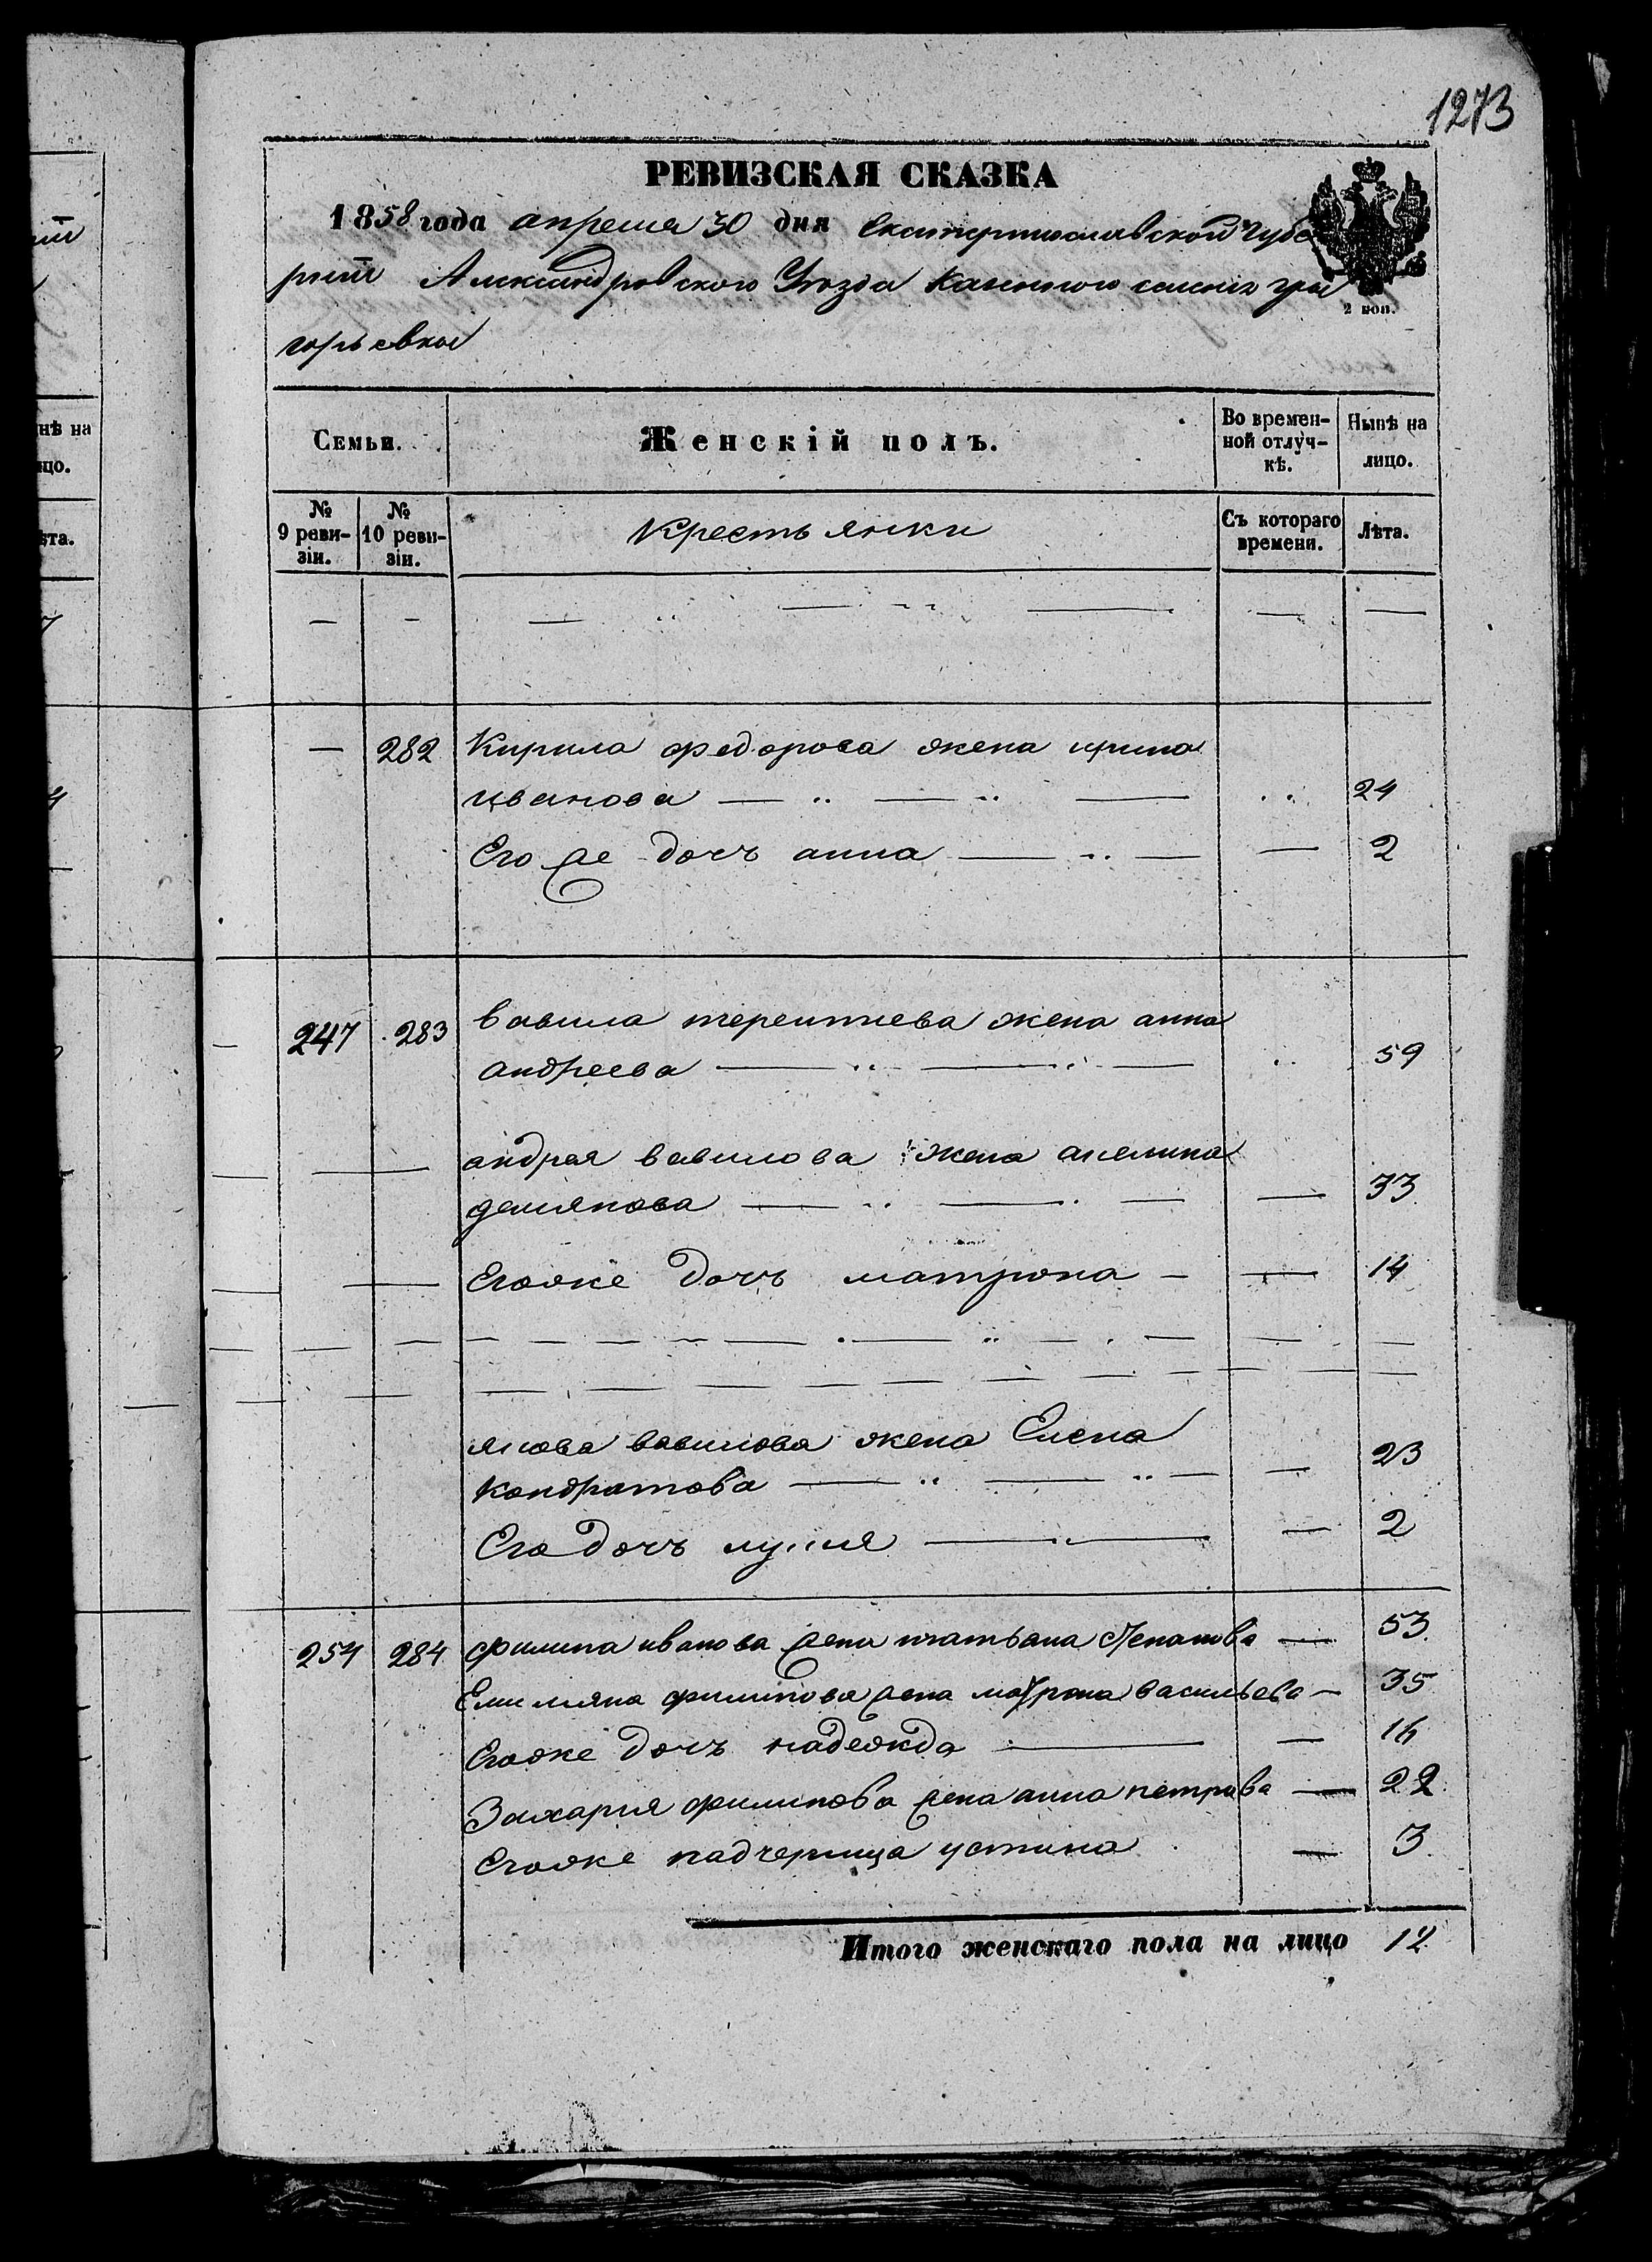 1273
РЕВИЗСКАЯ СКАЗКА
1858 года апреля 30 дня Екатеринославской Губе
рніи Александровского Уезда Казенного селенія Гри
горьевки
2 коп.
Семьи.
Женскій полъ.
Во времен-
ной отлуч-
кѣ.
Нынѣ на
лицо.
№
9 реви-
зіи.
№
10 реви-
зіи.
Крестьянки
Съ котораго
времени.
Лѣта.
— 282 Кирила федорова жена ирина
иванова — 24
Его же дочь анна — 2
247 283 вавила терентиева жена анна
андреева — 59
андрея вавилова жена акелина
демянова — 33
Егоже дочь матрона — 14
якова вавилова жена Елена
кондратова — 23
Его дочь — 2
254 284 филипа иванова жена татьана Степанова — 53
Емилияна филипова жена матрона васильева — 35
Егоже дочь надежда — 16
Захария филипова жена анна петрова — 22
Егоже падчерица устина — 3
Итого женскаго пола на лицо 12
нѣ на
цо.
ѣта.